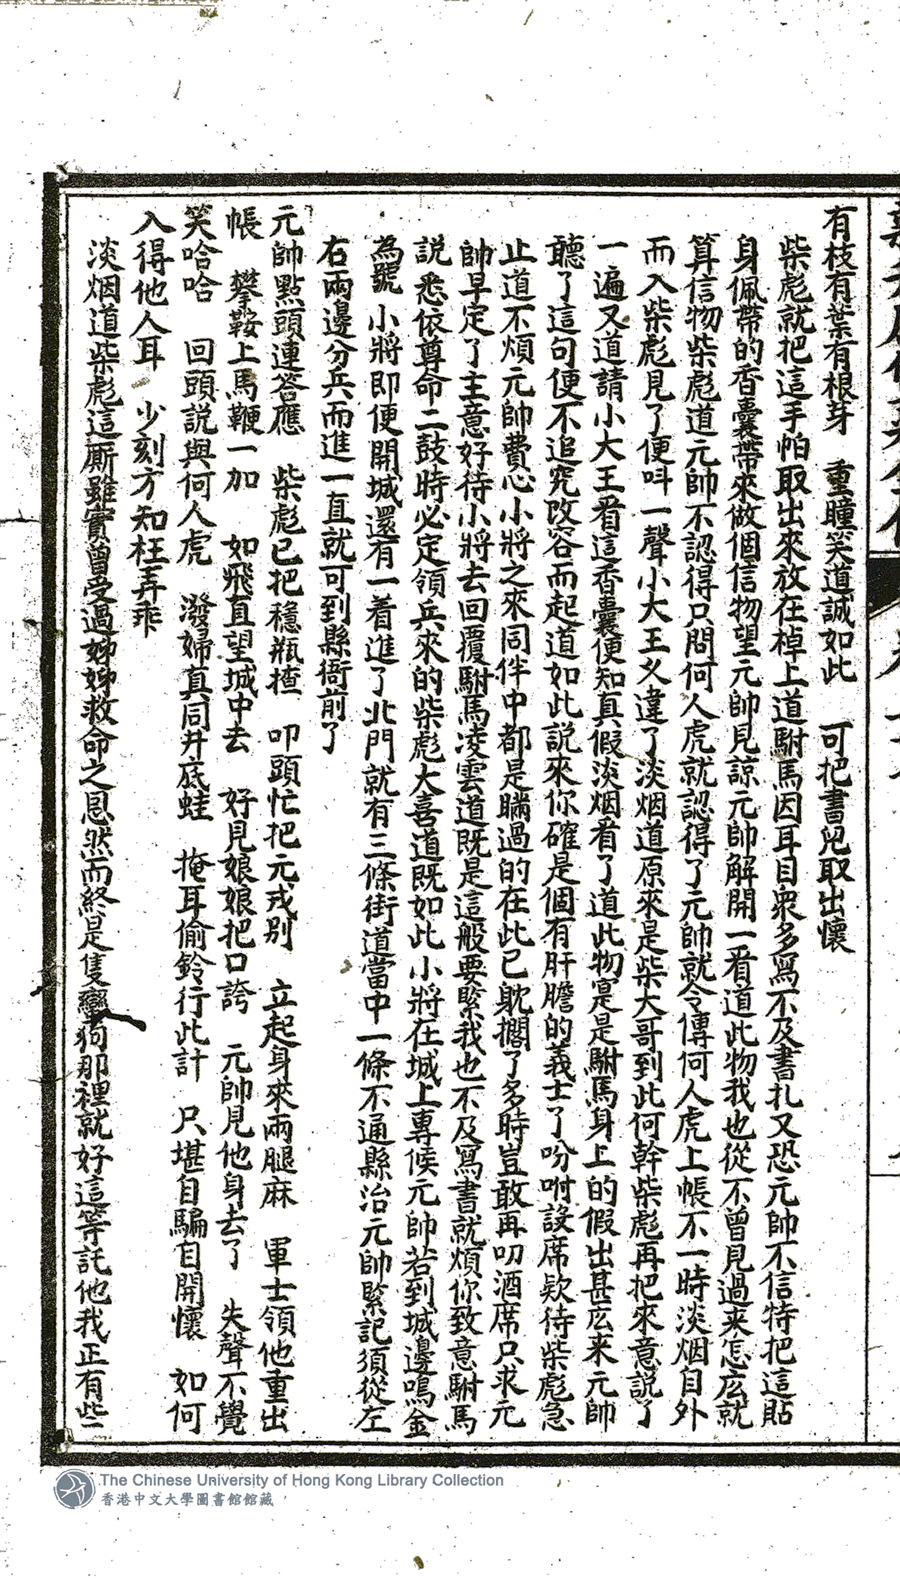 有枝有葉有根芽　重瞳笑道誠如此　可把書兒取出懷
柴彪就把這手帕取出來放在棹上道駙馬因耳目衆多寫不及書扎又恐元帥不信特把這貼
身佩帶的香囊帶來做個信物望元帥見諒元帥解開一看道此物我也從不曾見過来怎庅就
算信物柴彪道元帥不認得只問何人虎就認得了元帥就令傳何人虎上帳不一時淡烟自外
而入柴彪見了便呌一聲小大王乂違了淡烟道原來是柴大哥到此何幹柴彪再把來意説了
一遍又道請小大王看這香囊便知真假淡烟看了道此物寔是駙馬身上的假出甚庅来元帥
聽了這句便不追究改容而起道如此説來你確是個有肝膽的義士了吩咐設席欵待柴彪急
止道不煩元帥費心小將之來同伴中都是瞞過的在此已躭擱了多時豈敢再叨酒席只求元
帥早定了主意好待小將去回覆駙馬凌雲道既是這般要緊我也不及寫書就煩你致意駙馬
説悉依尊命二鼓時必定領兵來的柴彪大喜道既如此小將在城上專候元帥若到城邊鳴金
為號小將即便開城還有一着進了北門就有三條街道當中一條不通縣治元帥緊記須從左
右兩邊分兵而進一直就可到縣衙前了
元帥點頭連答應　柴彪已把穩瓶揸　叩頭忙把元戎别　立起身來兩腿麻　軍士領他重出
帳　攀鞍上馬鞭一加　如飛直望城中去　好見娘娘把口誇　元帥見他身去了　失聲不覺
笑哈哈　回頭説與何人虎　潑婦真同井底蛙　掩耳偷鈴行此計　只堪自騙自開懷　如何
入得他人耳　少刻方知枉弄乖
淡烟道柴彪這厮雖實曾受過姊姊救命之恩然而終是隻蠻狗那裡就好這等託他我正有些
The Chinese University of Hong Kong Library Collection
香港中文大學圖書館館藏